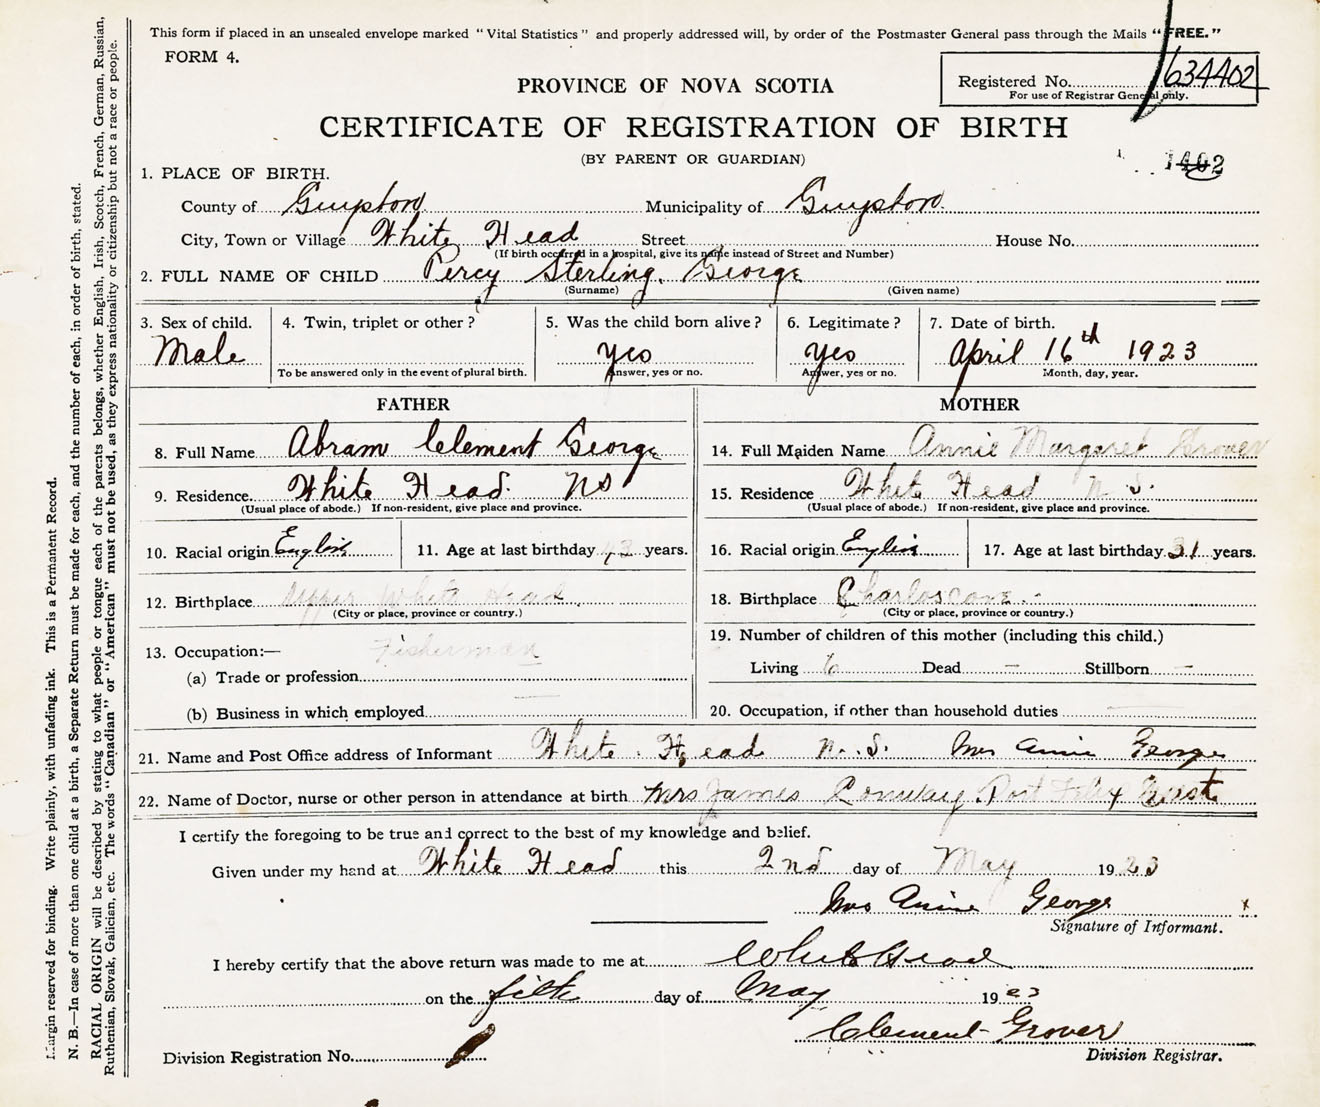 This form if placed in an unsealed envelope marked "Vital Statistics" and properly addressed will, by order of the Postmaster General pass through the Mails "FREE."
FORM 4.
Registered No. 634402
For use of Registrar General only.
PROVINCE OF NOVA SCOTIA
CERTIFICATE OF REGISTRATION OF BIRTH
(BY PARENT OR GUARDIAN)
1402
1. PLACE OF BIRTH.
County of Guysboro Municipality of Guysboro
City, Town or Village White Head Street House No.
(If birth occurred in a hospital, give its name instead of Street and Number)
2. FULL NAME OF CHILD Percy Sterling George
(Surname) (Given name)
3. Sex of child. 4. Twin, triplet or other? 5. Was the child born alive? 6. Legitimate? 7. Date of birth.
Male yes yes April 16th 1923
To be answered only in the event of plural birth. Answer, yes or no. Answer, yes or no. Month, day, year.
FATHER MOTHER
8. Full Name Abram Clement George 14. Full Maiden Name Annie Margaret Grover
9. Residence White Head. NS 15. Residence White Head N. S.
(Usual place of abode.) If non-resident, give place and province. (Usual place of abode.) If non-resident, give place and province.
10. Racial origin English 11. Age at last birthday 43 years. 16. Racial origin English 17. Age at last birthday 31 years.
12. Birthplace Upper White Head 18. Birthplace Charloscove
(City or place, province or country.) (City or place, province or country.)
19. Number of children of this mother (including this child.)
13. Occupation:— Fisherman
Living 6 Dead — Stillborn —
(a) Trade or profession
(b) Business in which employed 20. Occupation, if other than household duties
21. Name and Post Office address of Informant White Head N. S. Mrs Annie George
22. Name of Doctor, nurse or other person in attendance at birth Mrs James Conway Port Felix West
I certify the foregoing to be true and correct to the best of my knowledge and belief.
Given under my hand at White Head this 2nd day of May 1923
Mrs Annie George
Signature of Informant.
I hereby certify that the above return was made to me at White Head
on the day of May 1923
Clement Grover
Division Registrar.
Division Registration No.
Margin reserved for binding. Write plainly, with unfading ink. This is a Permanent Record.
N. B.—In case of more than one child at a birth, a Separate Return must be made for each, and the number of each, in order of birth, stated.
RACIAL ORIGIN will be described by stating to what people or tongue each of the parents belongs, whether English, Irish, Scotch, French, German, Russian,
Ruthenian, Slovak, Galician, etc. The words "Canadian" or "American" must not be used, as they express nationality or citizenship but not a race or people.